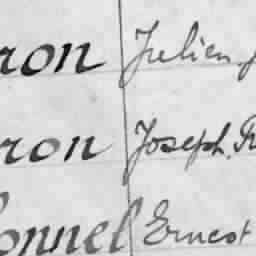 ron Julien J
ron Joseph. Fr
onnel Ernest